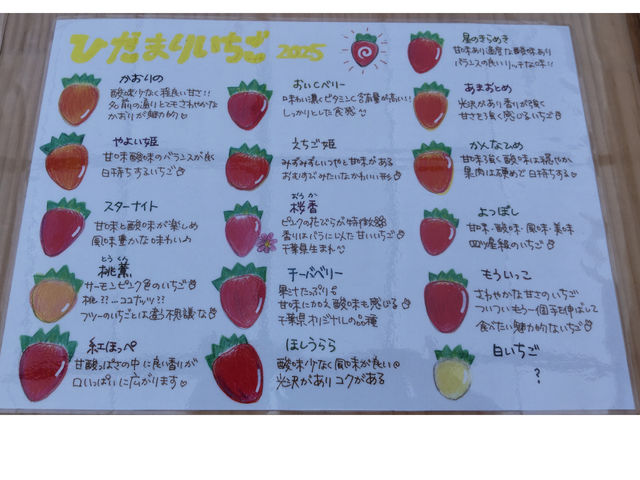 ひだまりいちご 2025
かおりの
酸味少なく程良い甘さ!!
名前の通りとてもさわやかな
かおりが魅力的
やよい姫
甘味酸味のバランスが良く
日持ちするいちご
スターナイト
甘味と酸味が楽しめ
風味豊かな味わい♪
とうくん
桃薫
サーモンピンク色のいちご
桃??...ココナッツ??
フツーのいちごとは違う不思議な
紅ほっぺ
甘酸っぱさの中に良い香りが
口いっぱいに広がります
おいCベリー
味わい濃くビタミンC含有量が高い!!
しっかりとした食感
えちご姫
みずみずしいつやと甘味がある
おむすびみたいなかわいい形
おうか
桜香
ピンクの花びらが特徴的
香りはバラに似た甘いいちご
千葉県生まれ
チーバベリー
果汁たっぷり
甘味にかえ酸味も感じる
千葉県オリジナルの品種
ほしうらら
酸味少なく風味が良い
光沢がありコクがある
星のきらめき
甘味あり適度な酸味あり
バランスの良いリッチな味!!
あまおとめ
光沢があり香りが強く
甘さを強く感じるいちご
かんなひめ
甘味強く酸味は穏やか
果肉は硬めで日持ちする
よつぼし
甘味・酸味・風味・美味
四ツ星級のいちご
もういっこ
さわやかな甘さのいちご
ついついもう一個手を伸ばして
食べたい魅力的ないちご
白いちご
?